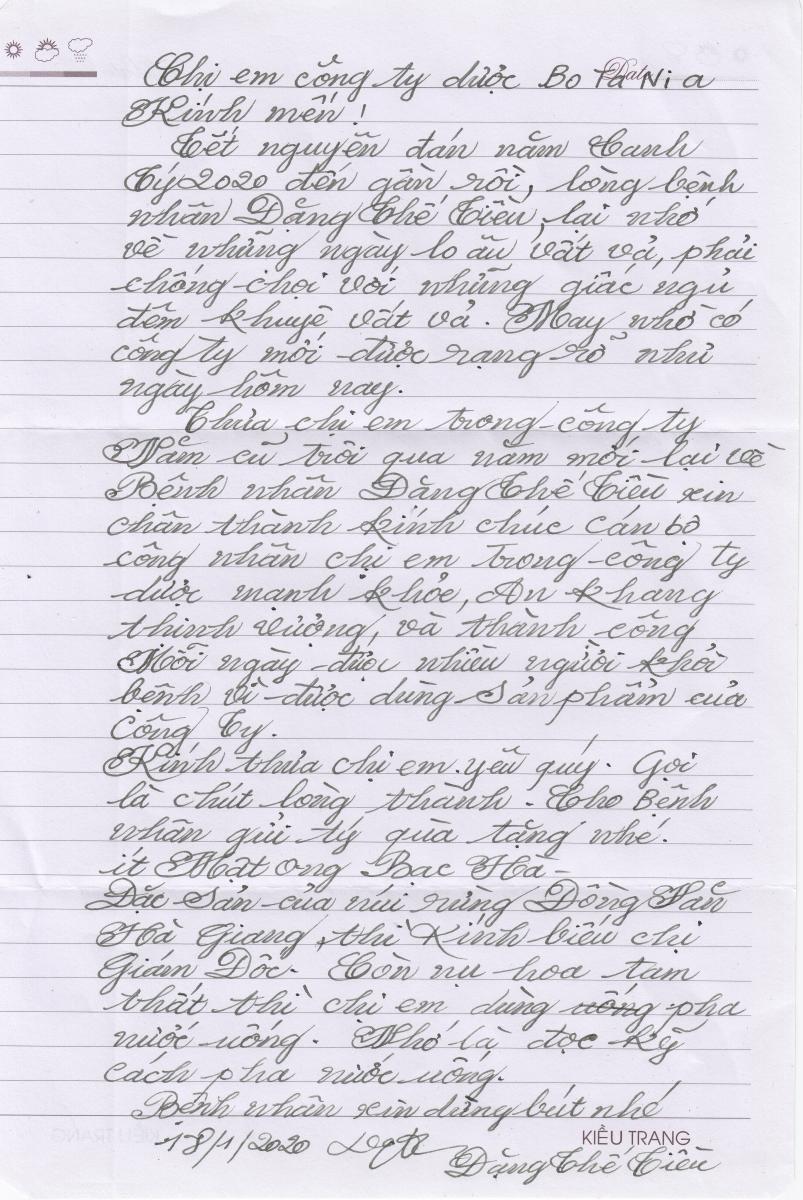 Chị em công ty dược BoTaNia
Date
Kính mến!
Tết nguyên đán năm Canh
Tý 2020 đến gần rồi, lòng bệnh
nhân Đặng Thế Tiều, lại nhớ
về những ngày lo âu vất vả, phải
chống chọi với những giấc ngủ
đêm khuyê vất vả. May nhờ có
công ty mới được rạng rỡ như
ngày hôm nay.
Thưa chị em trong công ty
Năm cũ trôi qua năm mới lại về
Bệnh nhân Đặng Thế Tiều xin
chân thành kính chúc cán bô
công nhân chị em trong công ty
dược mạnh khỏe, An khang
thịnh vượng, và thành công
Mỗi ngày được nhiều người khỏi
bệnh vì được dùng sản phẩm của
Công Ty.
Kính thưa chị em yêu quý. Gọi
là chút lòng thành. Cho Bệnh
nhân gửi tý quà tặng nhé.
ít Mật ong Bạc Hà -
Đặc sản của núi rừng Đồng Văn
Hà Giang, thì Kính biếu chị
Giám Đốc. Còn nụ hoa tam
thất thì chị em dùng uống pha
nước uống. Nhớ là đọc kỹ
cách pha nước uống.
Bệnh nhân xin dừng bút nhé
18/1/2020
KIỀU TRANG
Đặng Thế Tiều